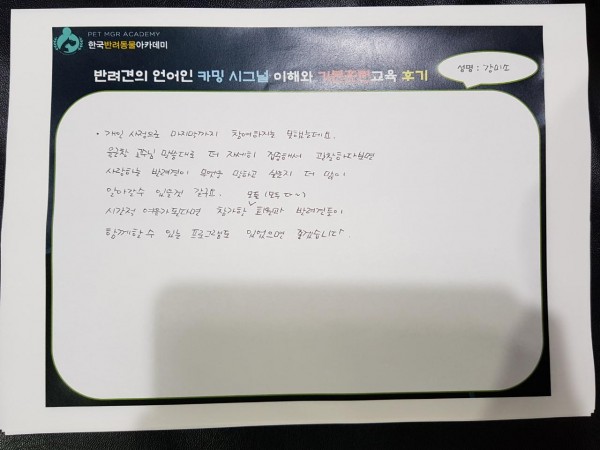 PET MGR ACADEMY
한국반려동물아카데미
반려견의 언어인 카밍 시그널 이해와 기본훈련교육 후기
성명 : 강미소
• 개인 사정으로 마지막까지 참여하지는 못했는데요.
교수님 말씀대로 더 자세히 집중해서 관찰하다보면
사랑하는 반려견이 무엇을 말하고 싶은지 더 많이
알아갈수 있을것 같구요.
모든 (모두 다~)
시간적 여유가 된다면 참가한 회원과 반려견들이
함께할 수 있는 프로그램도 있었으면 좋겠습니다.